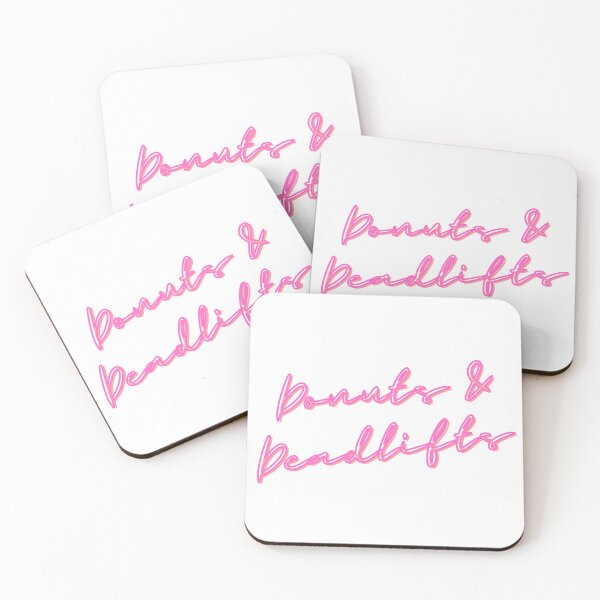 Donuts &
Donuts &
Deadlifts
Donuts &
Deadlifts
Donuts &
Deadlifts